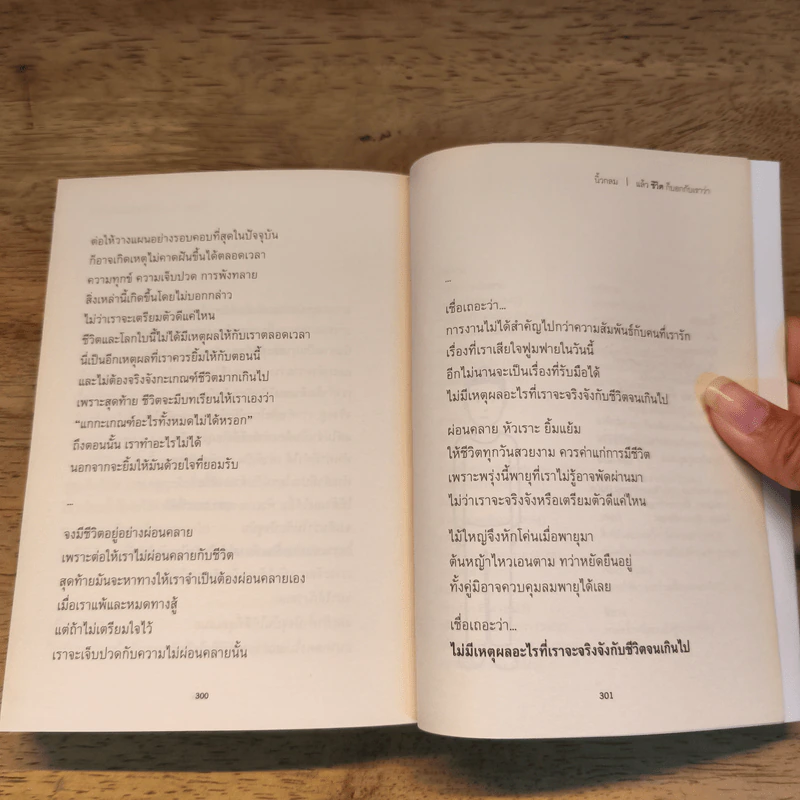 ต่อให้วางแผนอย่างรอบคอบที่สุดในปัจจุบัน
ก็อาจเกิดเหตุไม่คาดฝันขึ้นได้ตลอดเวลา
ความทุกข์ ความเจ็บปวด การพังทลาย
สิ่งเหล่านี้เกิดขึ้นโดยไม่บอกกล่าว
ไม่ว่าเราจะเตรียมตัวดีแค่ไหน
ชีวิตและโลกใบนี้ไม่ได้มีเหตุผลให้กับเราตลอดเวลา
นี่เป็นอีกเหตุผลที่เราควรยิ้มให้กับตอนนี้
และไม่ต้องจริงจังกะเกณฑ์ชีวิตมากเกินไป
เพราะสุดท้าย ชีวิตจะมีบทเรียนให้เราเองว่า
“แกกะเกณฑ์อะไรทั้งหมดไม่ได้หรอก”
ถึงตอนนั้น เราทำอะไรไม่ได้
นอกจากจะยิ้มให้มันด้วยใจที่ยอมรับ
–
จงมีชีวิตอยู่อย่างผ่อนคลาย
เพราะต่อให้เราไม่ผ่อนคลายกับชีวิต
สุดท้ายมันจะหาทางให้เราจำเป็นต้องผ่อนคลายเอง
เมื่อเราแพ้และหมดทางสู้
แต่ถ้าไม่เตรียมใจไว้
เราจะเจ็บปวดกับความไม่ผ่อนคลายนั้น
300
นิ้วกลม | แล้ว ชีวิต ก็บอกกับเราว่า
–
เชื่อเถอะว่า...
การงานไม่ได้สำคัญไปกว่าความสัมพันธ์กับคนที่เรารัก
เรื่องที่เราเสียใจฟูมฟายในวันนี้
อีกไม่นานจะเป็นเรื่องที่รับมือได้
ไม่มีเหตุผลอะไรที่เราจะจริงจังกับชีวิตจนเกินไป
ผ่อนคลาย หัวเราะ ยิ้มแย้ม
ให้ชีวิตทุกวันสวยงาม ควรค่าแก่การมีชีวิต
เพราะพรุ่งนี้พายุที่เราไม่รู้อาจพัดผ่านมา
ไม่ว่าเราจะจริงจังหรือเตรียมตัวดีแค่ไหน
ไม้ใหญ่จึงหักโค่นเมื่อพายุมา
ต้นหญ้าไหวเอนตาม ทว่าหยัดยืนอยู่
ทั้งคู่มิอาจควบคุมลมพายุได้เลย
เชื่อเถอะว่า...
ไม่มีเหตุผลอะไรที่เราจะจริงจังกับชีวิตจนเกินไป
301